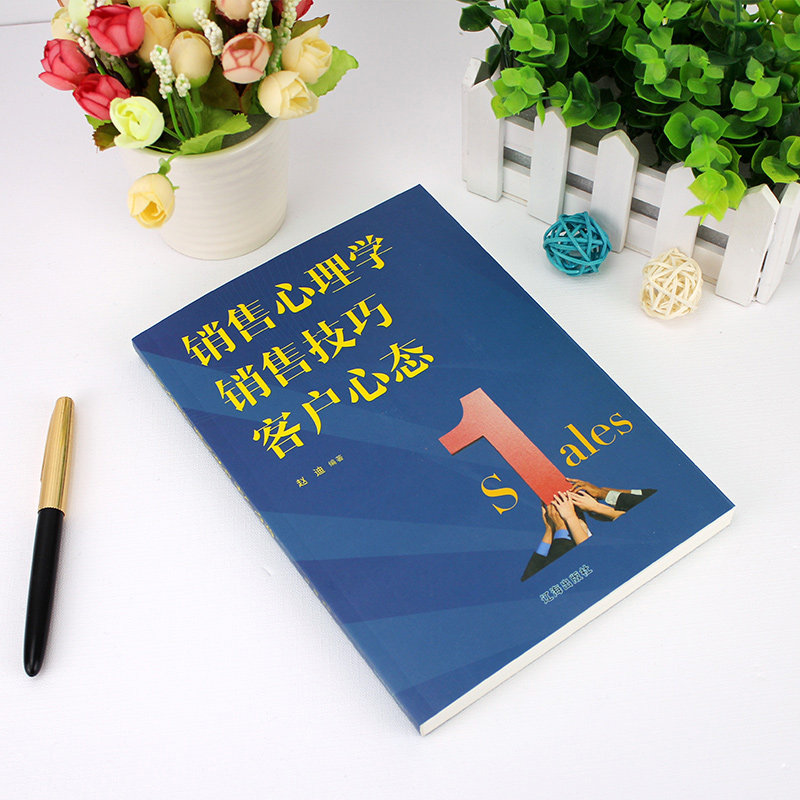 销售心理学
销售技巧
客户心态
赵 迪 编著
S ales
辽海出版社